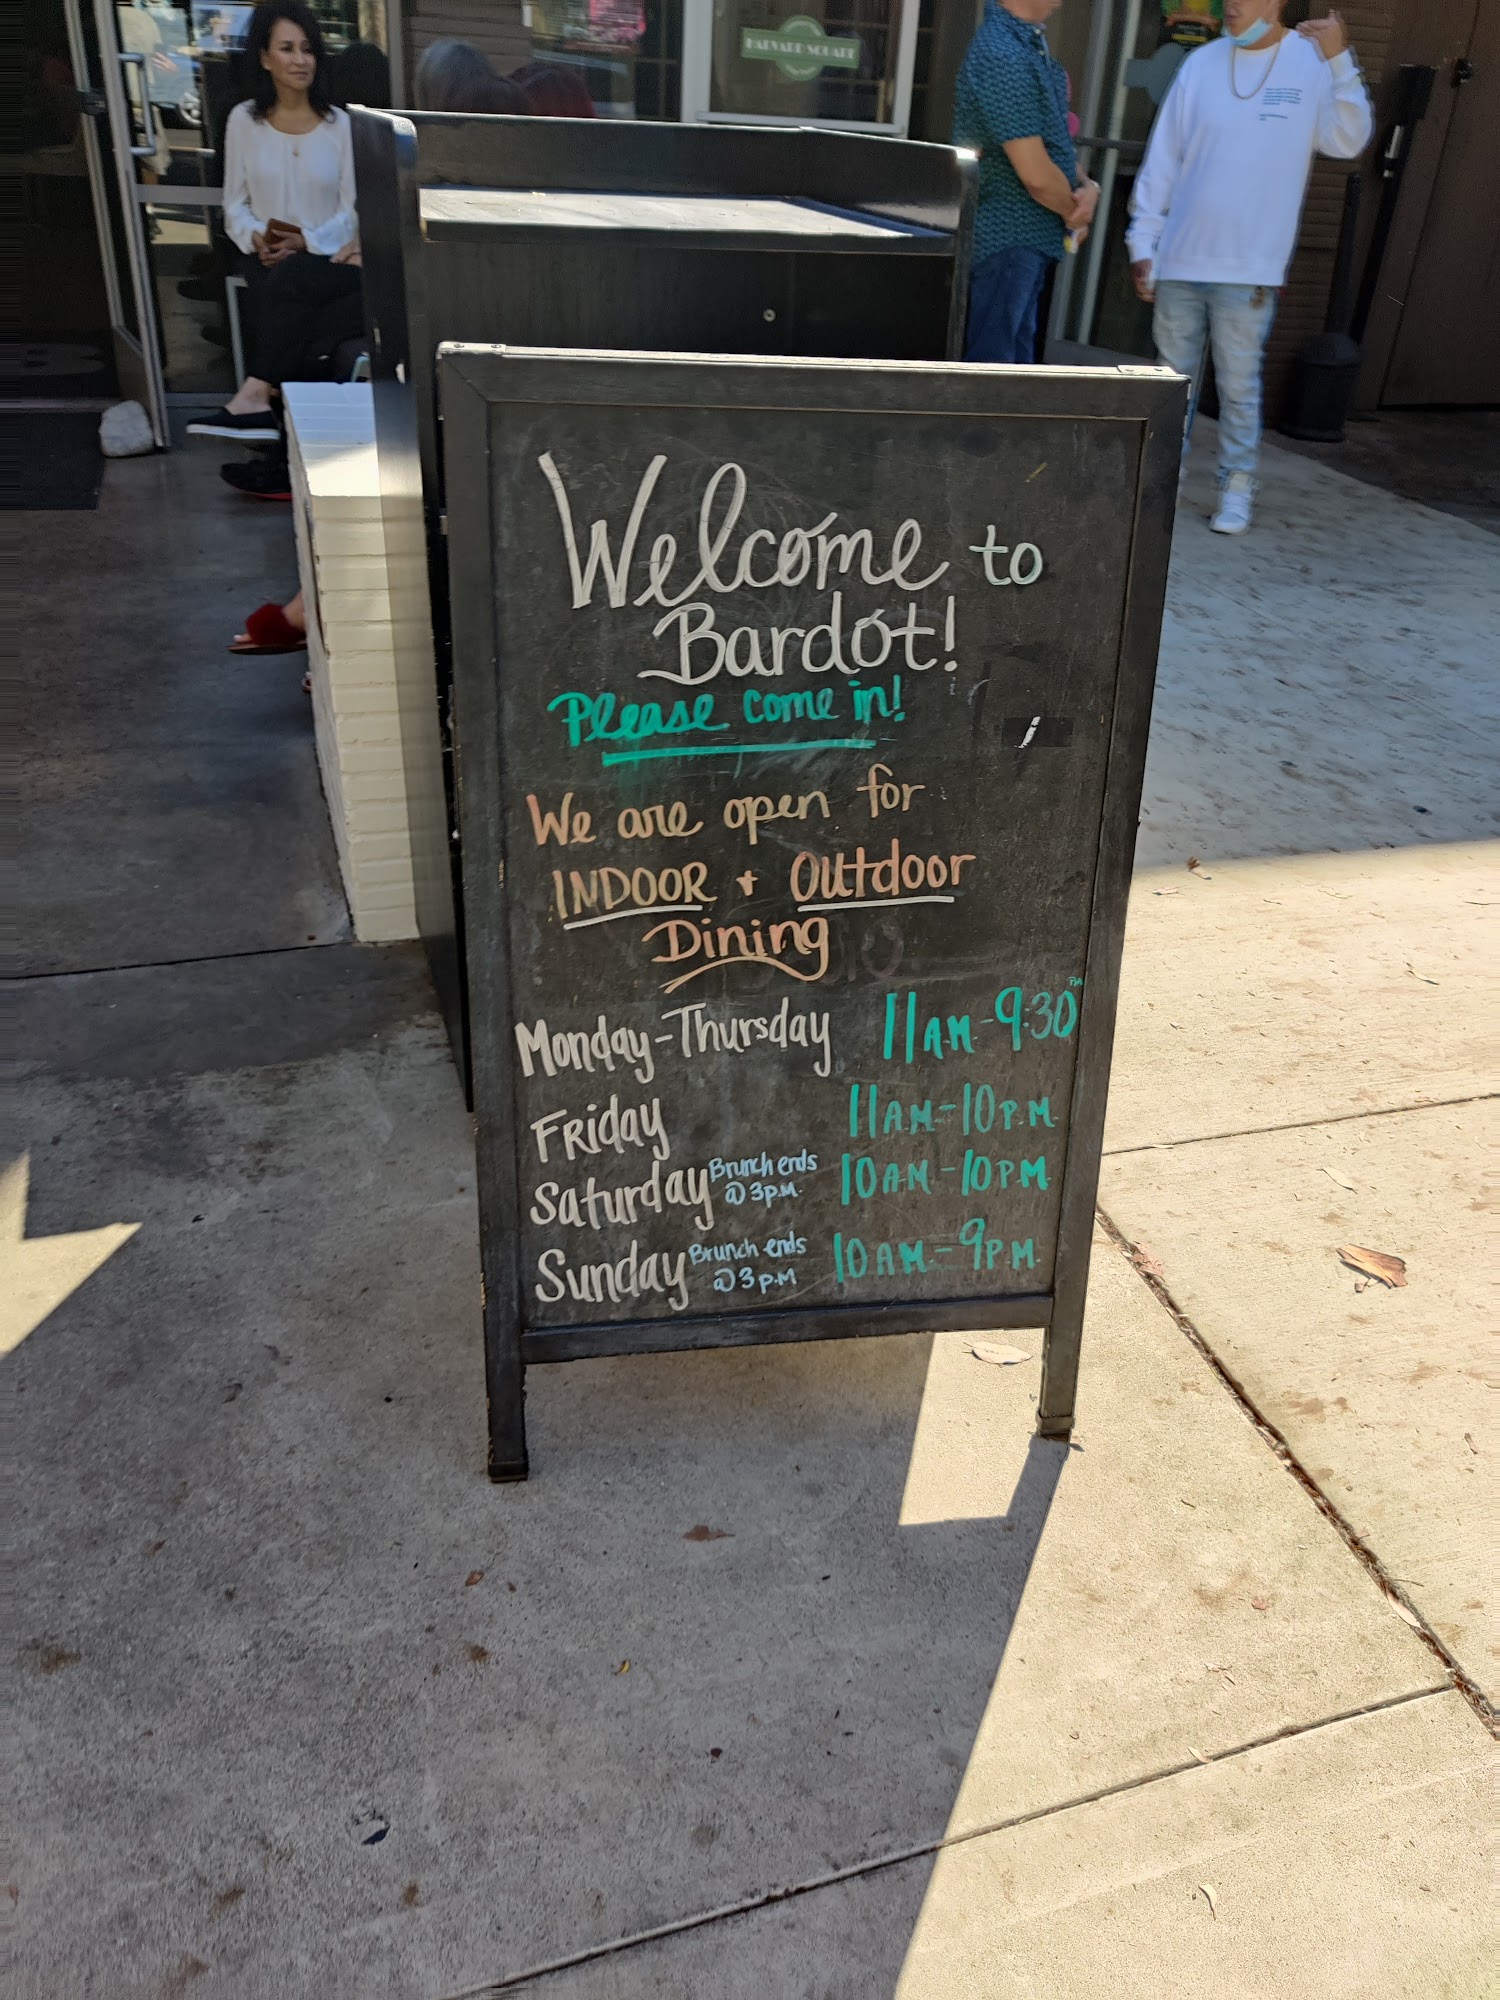 HARVARD SQUARE
Welcome to
Bardot!
Please come in!
We are open for
INDOOR + Outdoor
Dining
Monday-Thursday 11AM-9:30PM
Friday 11AM-10P.M.
Saturday Brunch ends @ 3p.m. 10AM-10PM
Sunday Brunch ends @ 3p.m 10AM-9P.M.